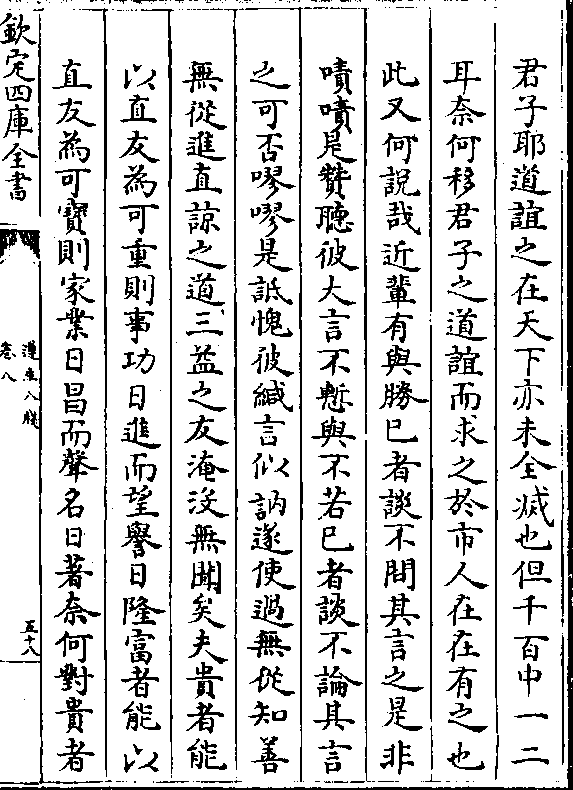 君子耶道誼之在天下亦未全滅也但千百中一二
耳奈何移君子之道誼而求之於市人在在有之也
此又何說哉近輩有與勝已者談不問其言之是非
嘖嘖是贊聽彼大言不慙與不若已者談不論其言
之可否嘐嘐是詆愧彼緘言似訥遂使過無從知善
無從進直諒之道三益之友淹沒無聞矣夫貴者能
以直友為可重則事功日進而望譽日隆富者能以
直友為可寶則家業日昌而聲名日著奈何對貴者
欽定四庫全書
遵生八牋
卷八
五十八